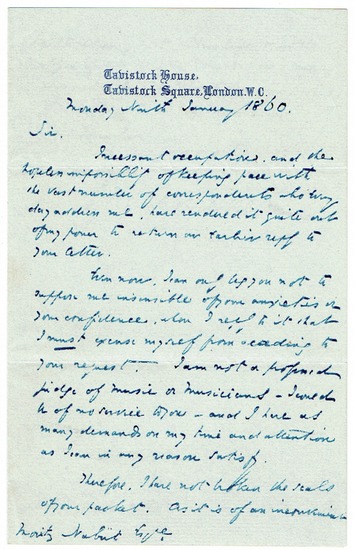 Tavistock House,
Tavistock Square, London. W.C.
Monday Ninth January 1860.
Sir.
Incessant occupation, and the
hopeless impossibility of keeping pace with
the vast number of correspondents who every
day address me, have rendered it quite out
of my power to return an earlier reply to
your letter.
Even now, I can only beg you not to
suppose me insensible of your anxieties or
your confidence, when I reply to it that
I must excuse myself from acceding to
your request. I am not a professed
judge of music or musicians – I could
be of no service to you – and I have as
many demands on my time and attention
as I can in any reason satisfy.
Therefore, I have not broken the seals
of your packet. As it is of an
Moritz Esqre.